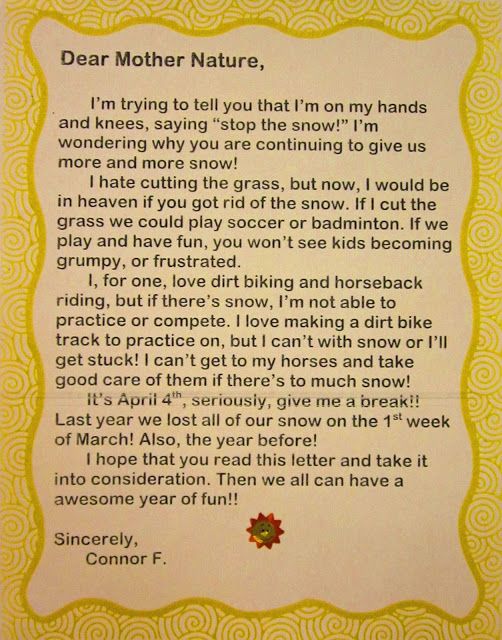 Dear Mother Nature,
I'm trying to tell you that I'm on my hands
and knees, saying "stop the snow!" I'm
wondering why you are continuing to give us
more and more snow!
I hate cutting the grass, but now, I would be
in heaven if you got rid of the snow. If I cut the
grass we could play soccer or badminton. If we
play and have fun, you won't see kids becoming
grumpy, or frustrated.
I, for one, love dirt biking and horseback
riding, but if there's snow, I'm not able to
practice or compete. I love making a dirt bike
track to practice on, but I can't with snow or I'll
get stuck! I can't get to my horses and take
good care of them if there's to much snow!
It's April 4th, seriously, give me a break!!
Last year we lost all of our snow on the 1st week
of March! Also, the year before!
I hope that you read this letter and take it
into consideration. Then we all can have a
awesome year of fun!!
Sincerely,
Connor F.